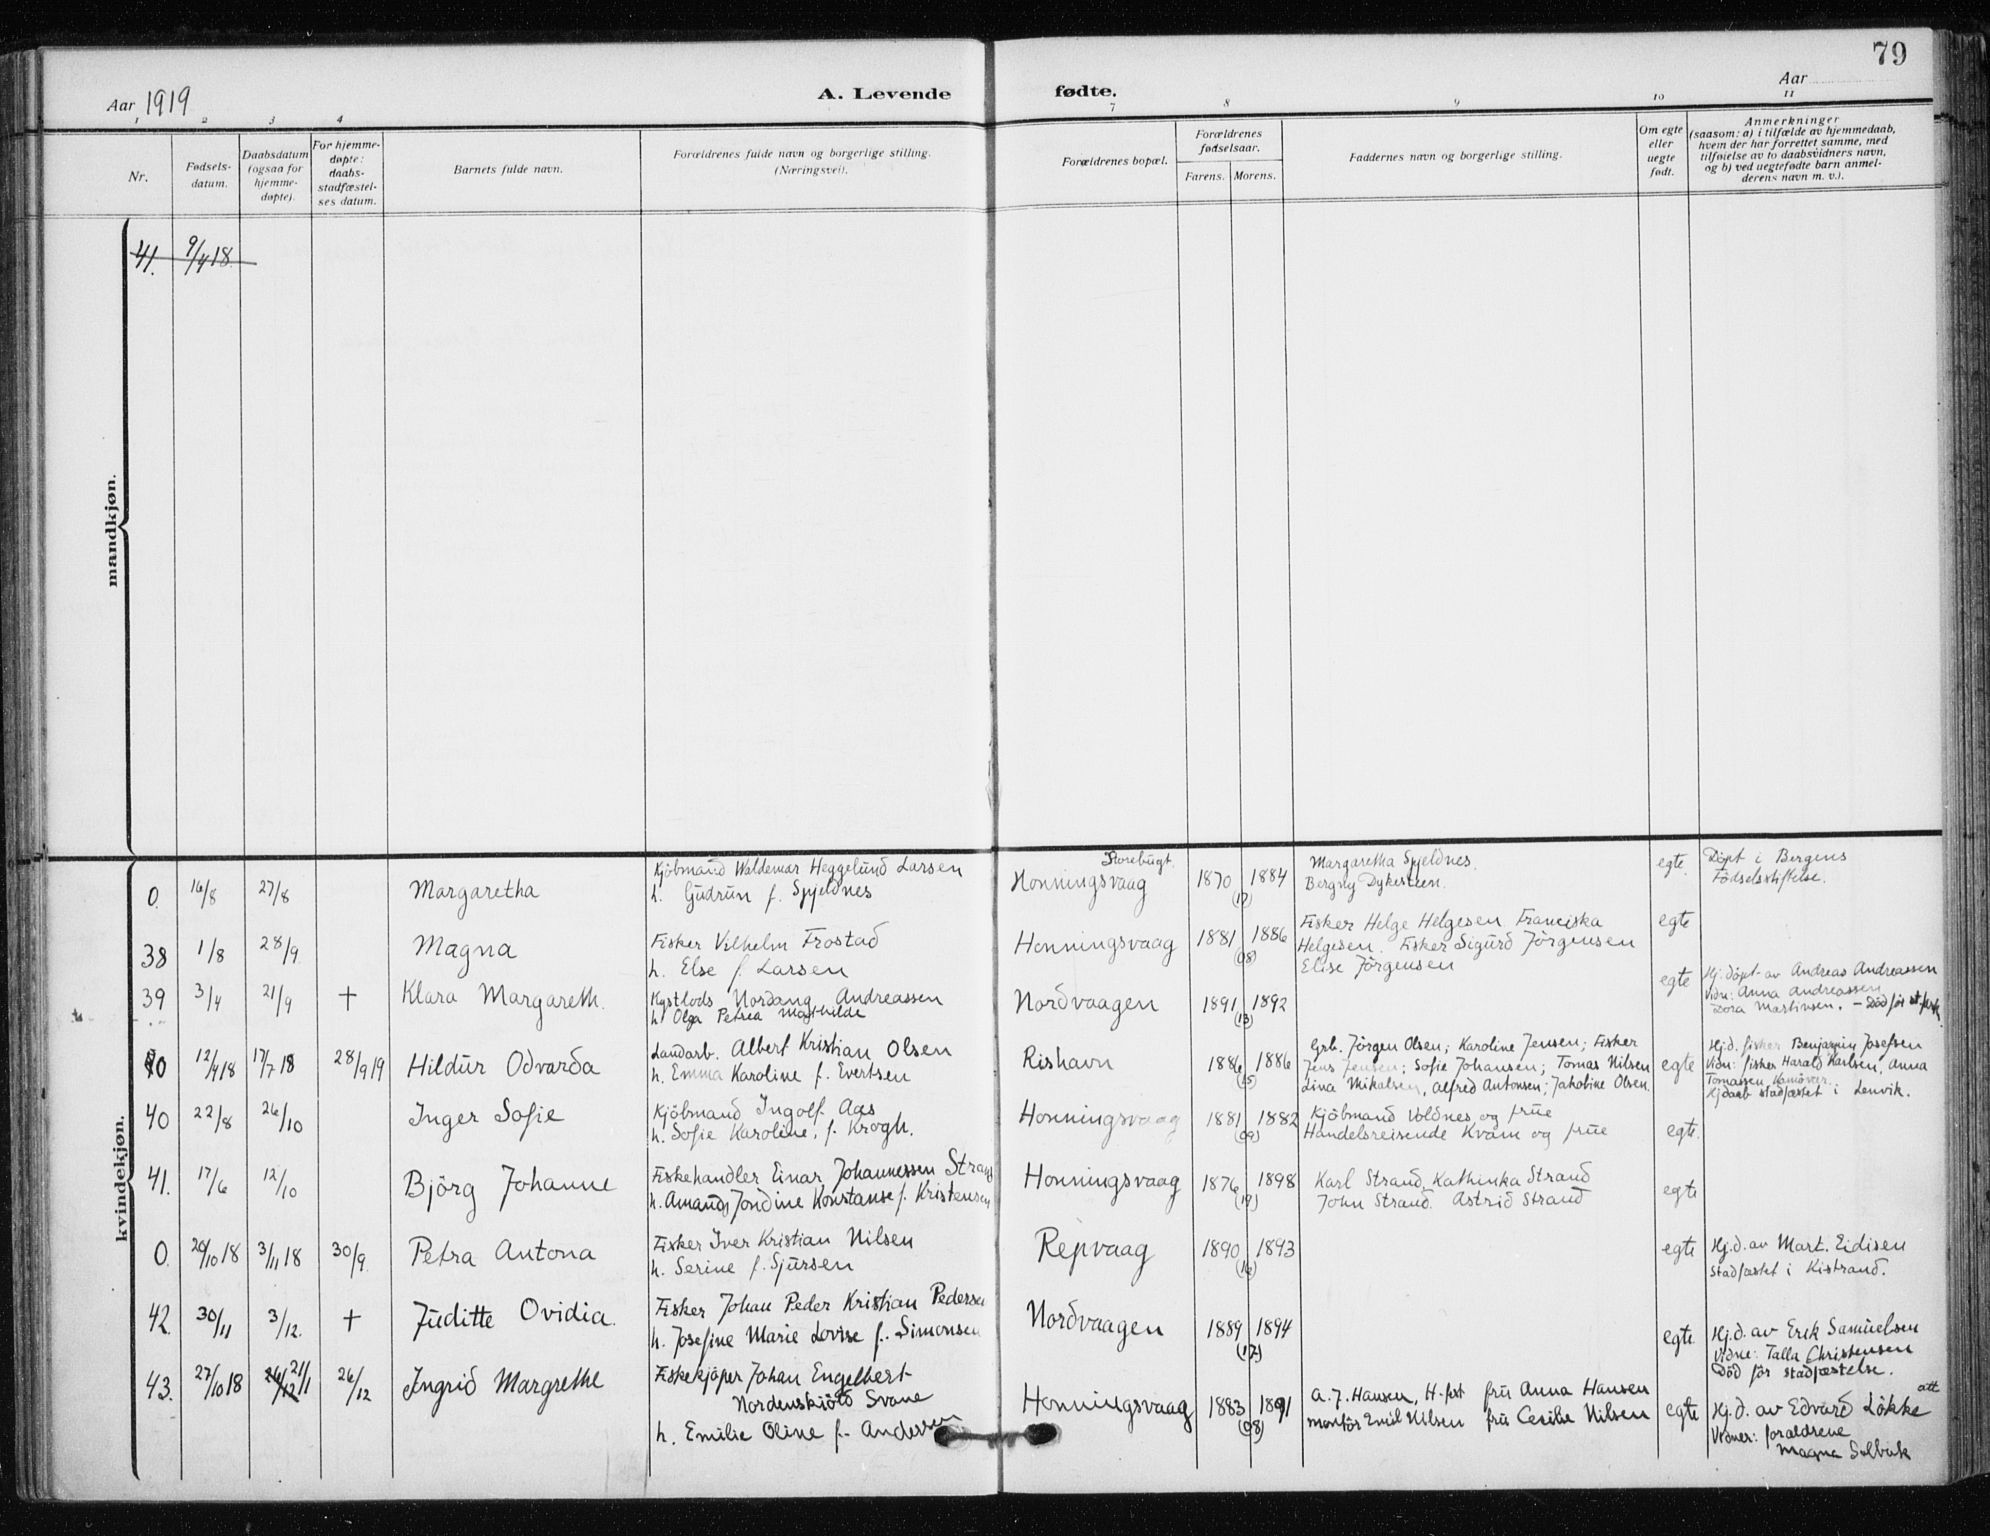 79
Aar 1919
A. Levende fødte.
Aar
1 2 3 4 7 8 9 10 11
Nr.
Fødsels-
datum.
Daabsdatum
(ogsaa for
hjemme-
døpte).
For hjemme-
døpte:
daabs-
stadfæstel-
ses datum.
Barnets fulde navn.
Forældrenes fulde navn og borgerlige stilling.
(Næringsvei).
Forældrenes bopæl.
Forældrenes
fødselsaar.
Farens. Morens.
Faddernes navn og borgerlige stilling.
Om egte
eller
uegte
født.
Anmerkninger
(saasom: a) i tilfælde av hjemmedaab,
hvem der har forrettet samme, med
tilføielse av to daabsvidners navn,
og b) ved uegtefødte barn anmel-
derens navn m. v.).
mandkjøn.
41. 9/4 18.
kvindekjøn.
0. 16/8 27/8 Margaretha
Kjöbmand Waldemar Heggelund Larsen
h. Gudrun f. Spjeldnes
Storebugt.
Honningsvaag 1870 1884
(17)
Margaretha Spjeldnes.
Bergny Dykesteen.
egte
Döpt i Bergens
Födselsstiftelse.
38 1/8 28/9 Magna
Fisker Vilhelm Frostad
h. Else f. Larsen
Honningsvaag 1881 1886
(08)
Fisker Helge Helgesen Franciska
Helgesen. Fisker Sigurd Jörgensen
Elise Jörgensen
egte
39 3/4 21/9 + Klara Margareth.
Kystlods Nordang Andreassen
h. Olga Petrea Mathilde
Nordvaagen 1891 1892
(13)
egte
Hj. döpt av Andreas Andreassen
Vidn: Anna Andreassen
Dora Martinsen. – Död för st.fæst.
0 12/4 18 17/7 18 28/9 19 Hildur Odvarda
Landarb. Albert Kristian Olsen
h. Emma Karoline f. Evertsen
Rishavn 1886 1886
(15)
Grb. Jörgen Olsen; Karoline Jensen; Fisker
Jens Jensen; Sofie Johansen; Tomas Nilsen
Lina Mikalsen, Alfred Antonsen; Jakobine Olsen.
egte
Hj.d. fisker Benjamin Josefsen
Vidn: fisker Harald Karlsen, Anna
Tomassen Kamöver.
Hjdaab stadfæstet i Lenvik.
40 22/8 26/10 Inger Sofie
Kjöbmand Ingolf Aas
h. Sofie Karoline, f. Krogh.
Honningsvaag 1881 1882
(09)
Kjöbmand Voldnes og frue
Handelsreisende Kvam og frue
egte.
41. 17/6 12/10 Björg Johanne
Fiskehandler Einar Johannessen Strand
h. Amanda Jondine Konstanse f. Kristensen
Honningsvaag 1876 1898
(17)
Karl Strand, Kathinka Strand
John Strand. Astrid Strand
egte
0. 20/10 18 3/11 18 30/9. Petra Antona
Fisker Iver Kristian Nilsen
h. Serine f. Sjursen
Repvaag 1890 1893
(12)
egte
Hj.d. av Mart. Eidisen
Stadfæstet i Kistrand.
42. 30/11 3/12. + Juditte Ovidia.
Fisker Johan Peder Kristian Pedersen
h. Josefine Marie Lovise f. Simonsen
Nordvaagen 1889 1894
(17)
egte
Hj.d. av Erik Samuelsen
Vidne: Talla Christensen
Död för stadfæstelse.
43. 27/10 18 26/12 21/1 26/12 Ingrid Margrethe
Fiskekjöper Johan Engelbert
Nordenskiöld Svane
h. Emilie Oline f. Andersen
Honningsvaag 1883 1891
(08)
A. J. Hansen, H-fest fru Anna Hansen
montör Emil Nilsen fru Cecilie Nilsen
egte
Hj.d. av Edvard Lökke
Vidner: foraldrene
Magna Solbak